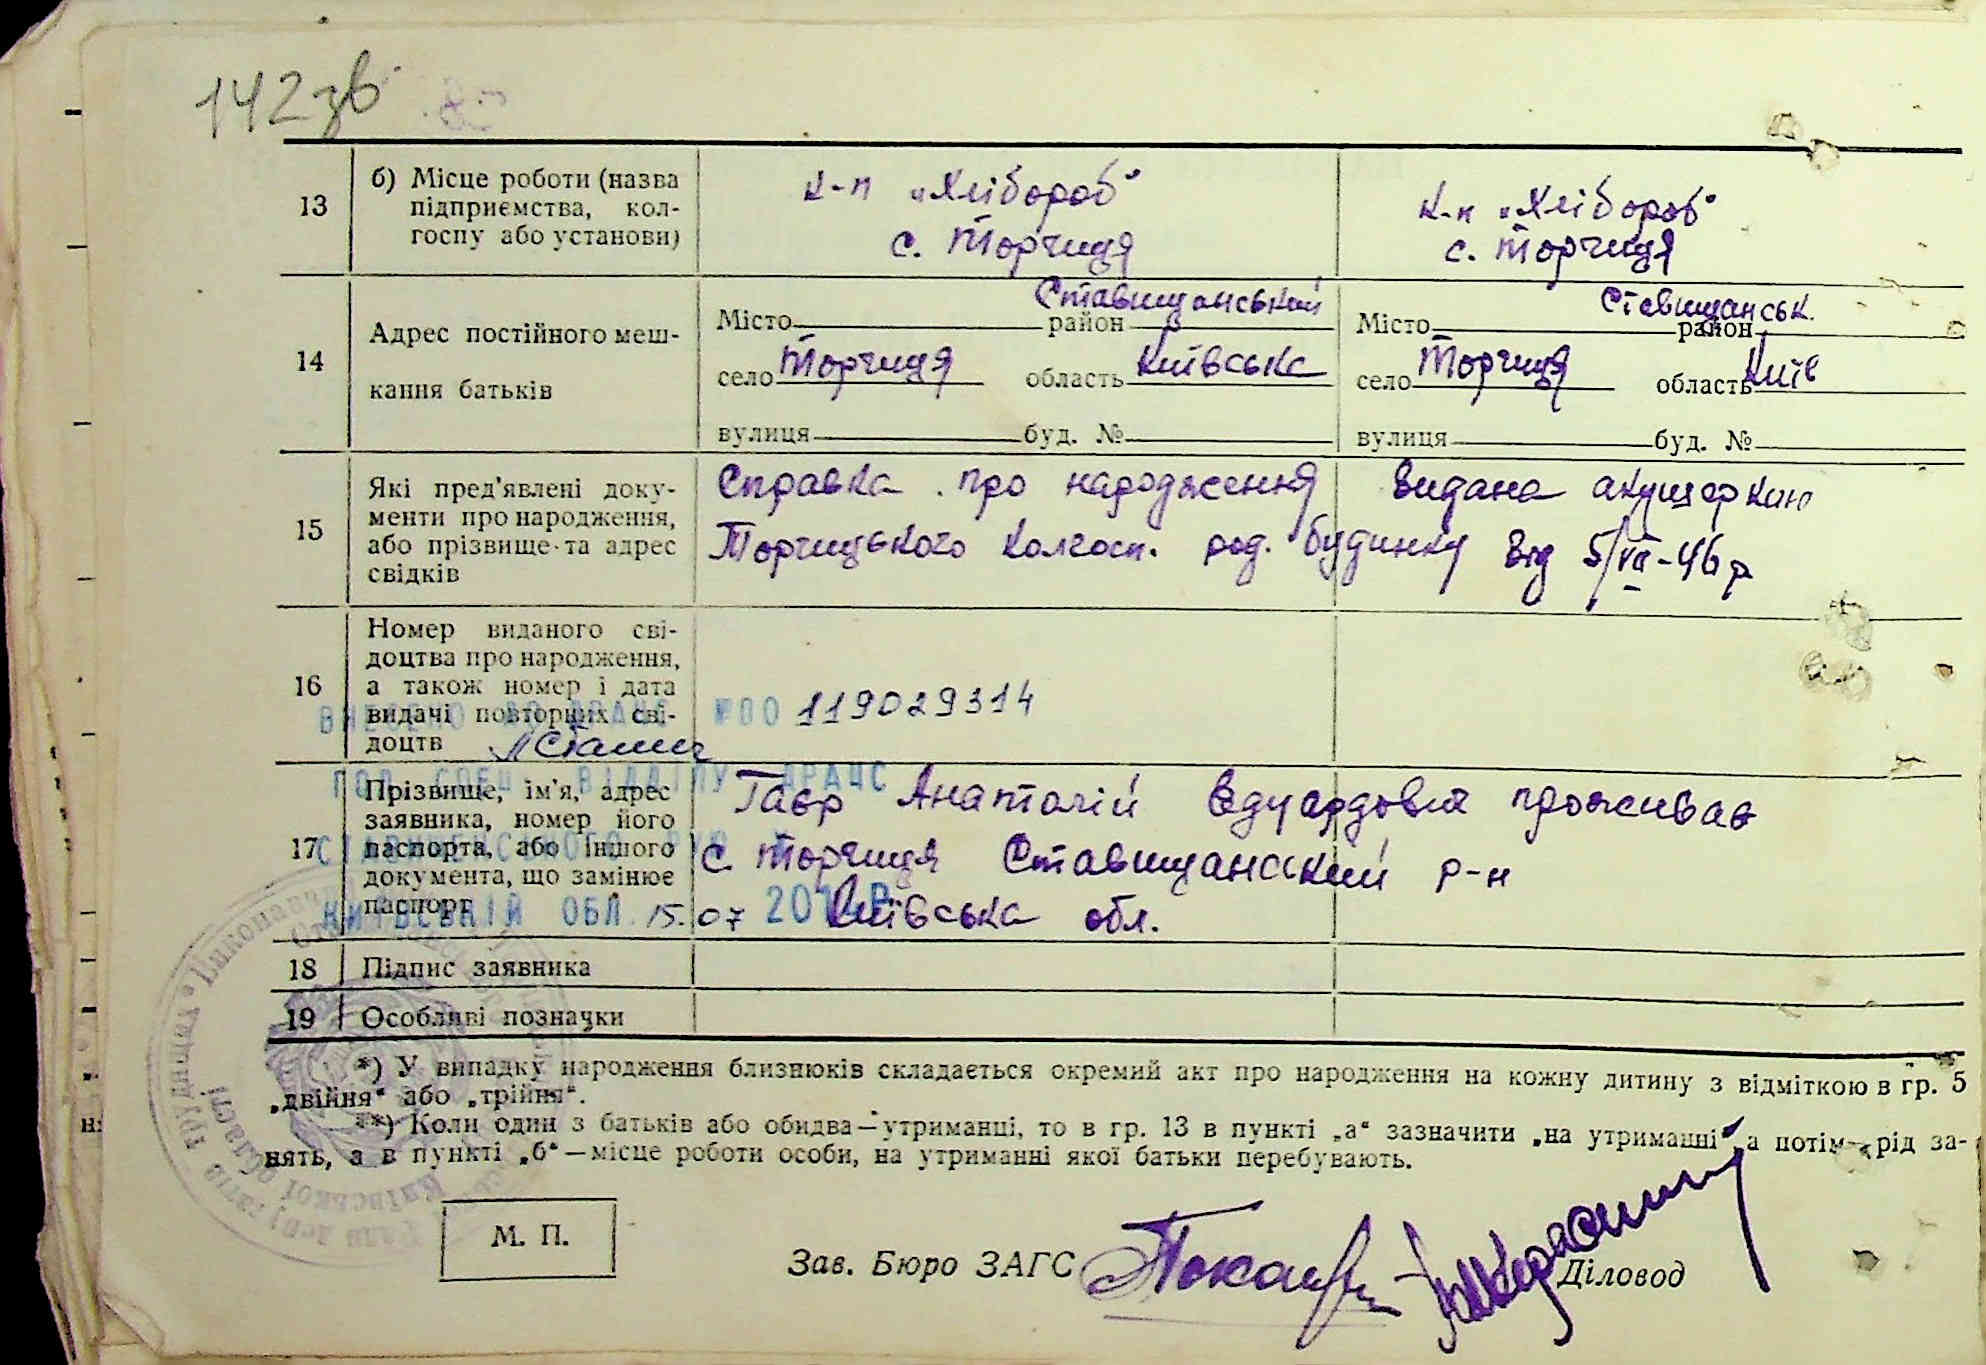 142 зв
13
б) Місце роботи (назва
підприємства, кол-
госпу або установи)
к-п „Хлібороб"
с. Торчиця
к-п „Хлібороб"
с. Торчиця
14
Адрес постійного меш-
кання батьків
Місто район Ставищанський
село Торчиця область Київська
вулиця буд. №
Місто район Ставищанськ.
село Торчиця область Київ
вулиця буд. №
15
Які пред'явлені доку-
менти про народження,
або прізвище та адрес
свідків
Справка про народження видана акушеркою
Торчицького колгосп. род. будинку від 5/VII-46 р
16
Номер виданого сві-
доцтва про народження,
а також номер і дата
видачі повторних сві-
доцтв
ВНЕСЕНО ДО ДРАЦС №00119029314
17
Прізвище, ім'я, адрес
заявника, номер його
паспорта, або іншого
документа, що замінює
паспорт
ГОЛ. СПЕЦ. ВІДДІЛУ ДРАЦС
КИЇВСЬКІЙ ОБЛ. 15.07
Гаєр Анатолій Едуардович проживає
с Торчиця Ставищанський р-н
Київська обл.
18
Підпис заявника
19
Особливі позначки
*) У випадку народження близнюків складається окремий акт про народження на кожну дитину з відміткою в гр. 5
„двійня" або „трійня".
**) Коли один з батьків або обидва—утриманці, то в гр. 13 в пункті „а" зазначити „на утриманні", а потім—рід за-
нять, а в пункті „б"—місце роботи особи, на утриманні якої батьки перебувають.
М. П.
Зав. Бюро ЗАГС
Діловод